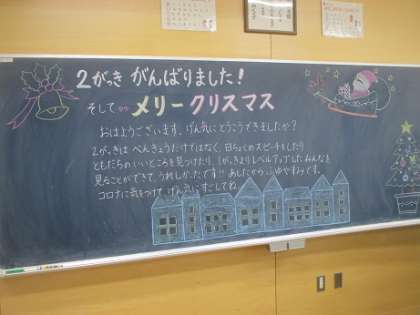 2がっき がんばりました!
そして
メリークリスマス
おはようございます。げん気にとうこうできましたか?
2がっきは べんきょうだけではなく、日ちょくのスピーチをしたり
ともだちの いいところを見つけたり、1がっきよりレベルアップしたみんなを
見ることができて、うれしかったです!! あしたからふゆやすみです。
コロナに気をつけて、げん気にすごしてね。